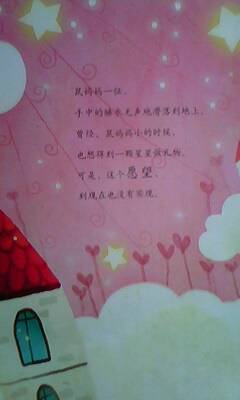 鼠妈妈一征，
手中的抹布无声地滑落到地上。
曾经，鼠妈妈小的时候，
也想得到一颗星星做礼物，
可是，这个愿望，
到现在也没有实现。